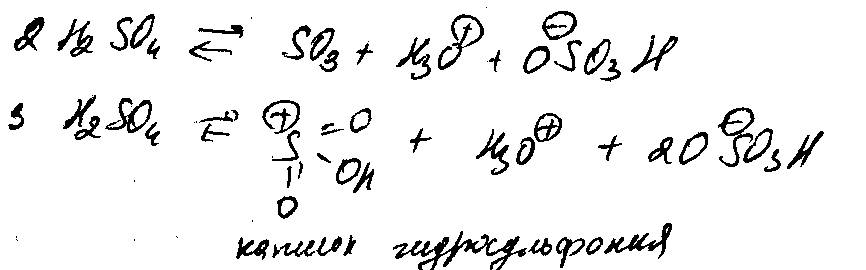 2 H₂SO₄ ⇌ SO₃ + H₃O⊕ + ⊖OSO₃H
3 H₂SO₄ ⇌ ⊕S(=O)(=O)OH + H₃O⊕ + 2O⊖SO₃H
катион гидросульфония